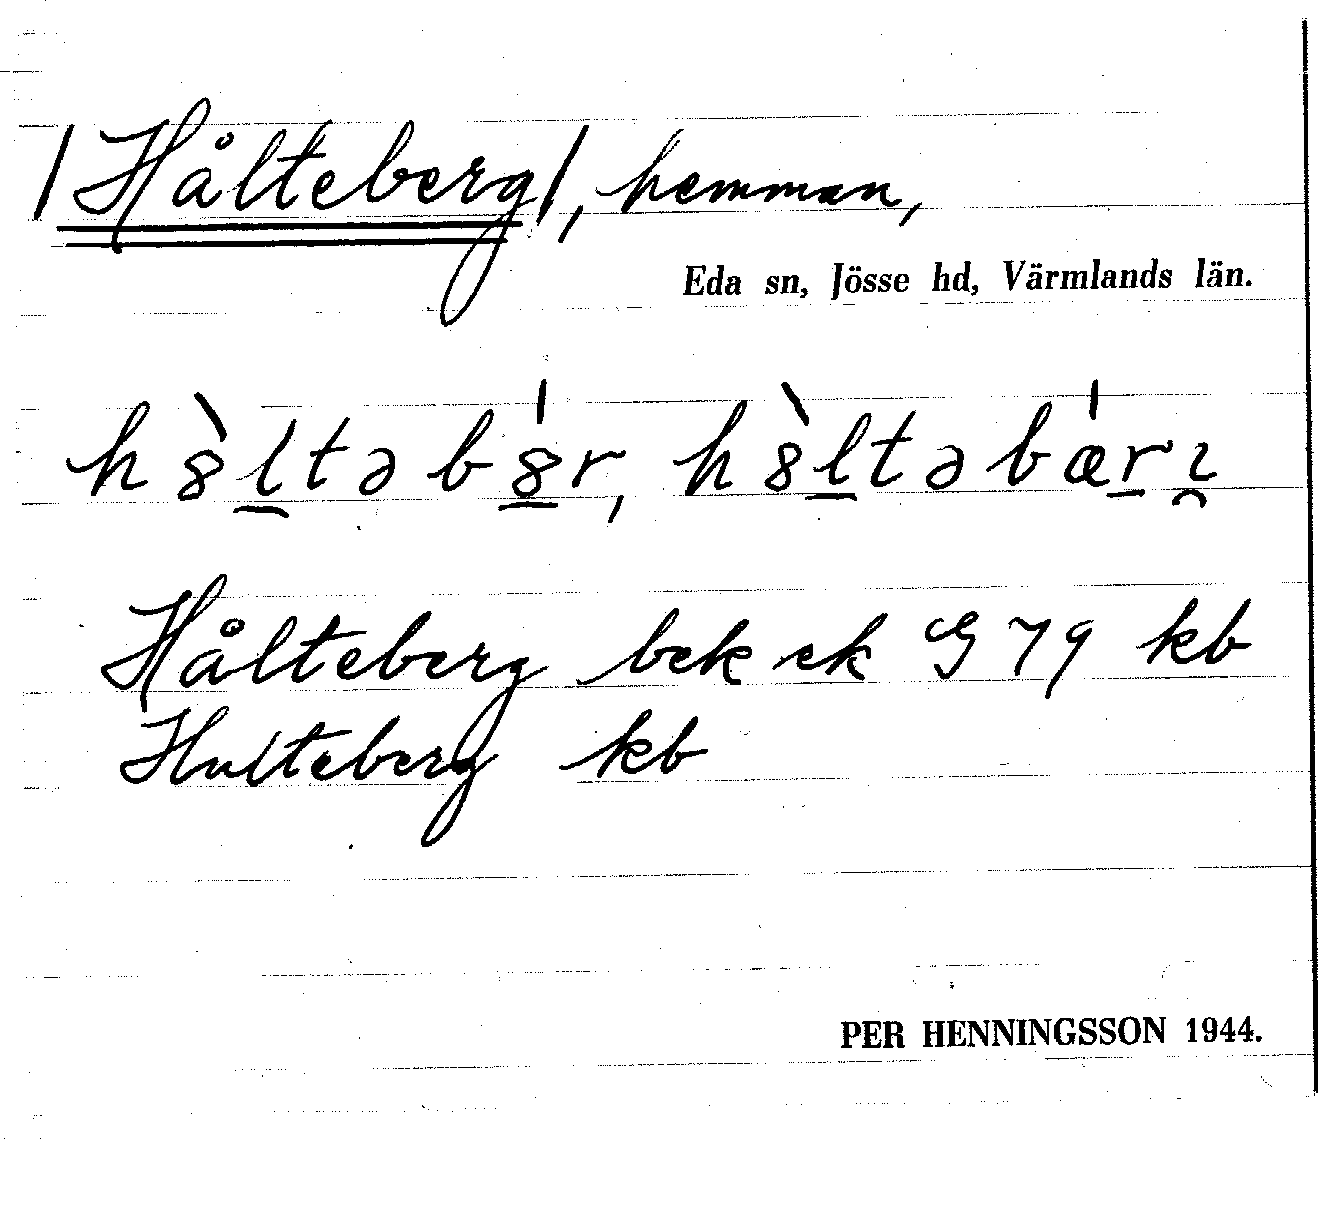 /Hålteberg/, hemman,
Eda sn, Jösse hd, Värmlands län.
h8̀l̲təb8̲́r, h8̀l̲təbǽr̲ı̯
Hålteberg bek ek G 79 kb
Hulteberg kb
PER HENNINGSSON 1944.